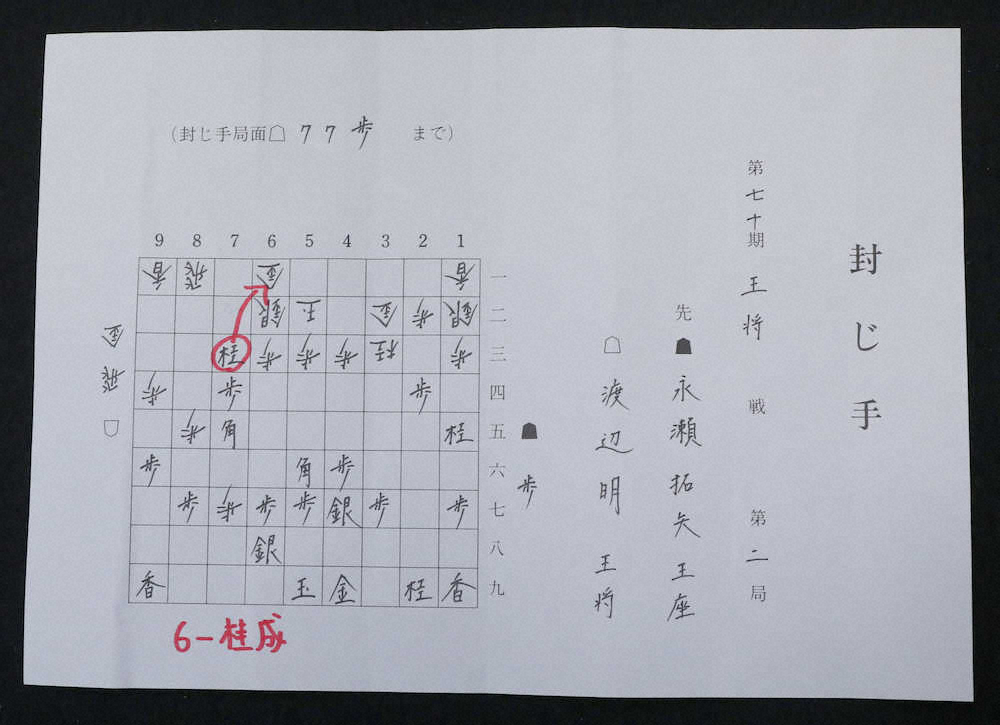 封じ手
第七十期 王将 戦 第二局
先 ☗ 永瀬拓矢王座
☖ 渡辺明 王将
(封じ手局面☖77歩 まで)
9 8 7 6 5 4 3 2 1
香 飛 金 香 一
銀 玉 金 歩 銀 二
桂 歩 歩 歩 桂 歩 三
歩 歩 歩 四
歩 角 桂 五
歩 角 歩 六
歩 歩 歩 歩 銀 歩 歩 七
銀 八
香 玉 金 桂 香 九
☗ 歩
☖ 飛 金
6一桂成